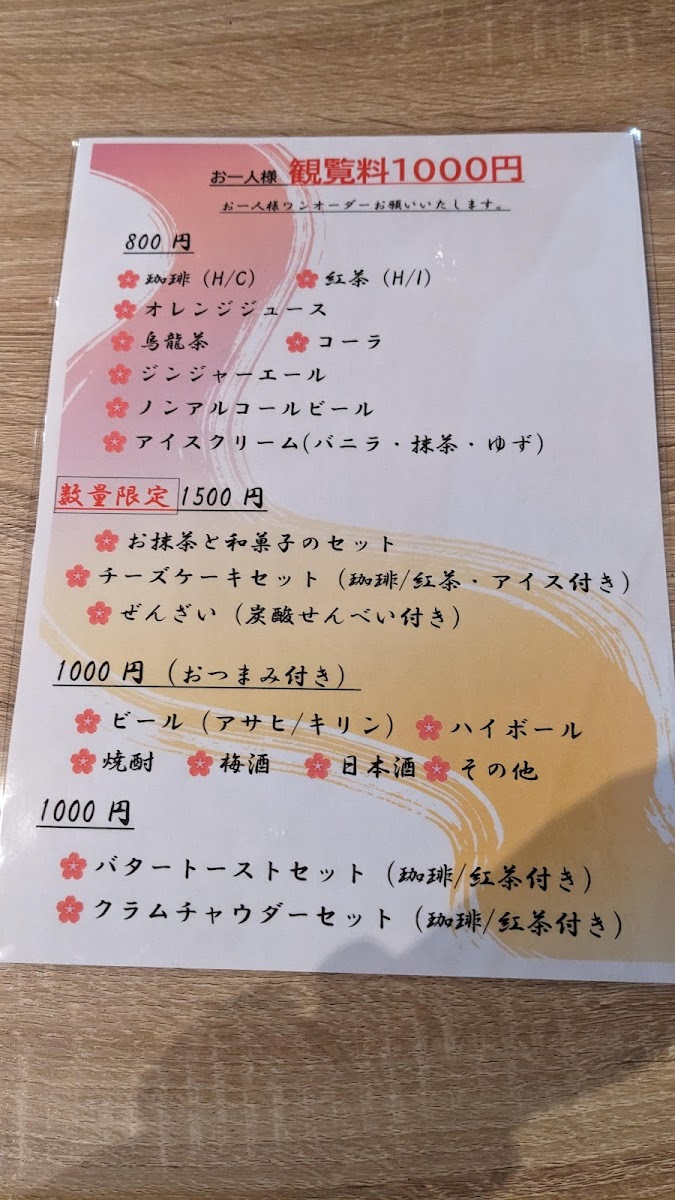 お一人様 観覧料1000円
お一人様ワンオーダーお願いいたします。
800 円
珈琲 (H/C) 紅茶 (H/I)
オレンジジュース
烏龍茶 コーラ
ジンジャーエール
ノンアルコールビール
アイスクリーム(バニラ・抹茶・ゆず)
数量限定 1500 円
お抹茶と和菓子のセット
チーズケーキセット (珈琲/紅茶・アイス付き)
ぜんざい (炭酸せんべい付き)
1000 円 (おつまみ付き)
ビール (アサヒ/キリン) ハイボール
焼酎 梅酒 日本酒 その他
1000 円
バタートーストセット (珈琲/紅茶付き)
クラムチャウダーセット (珈琲/紅茶付き)